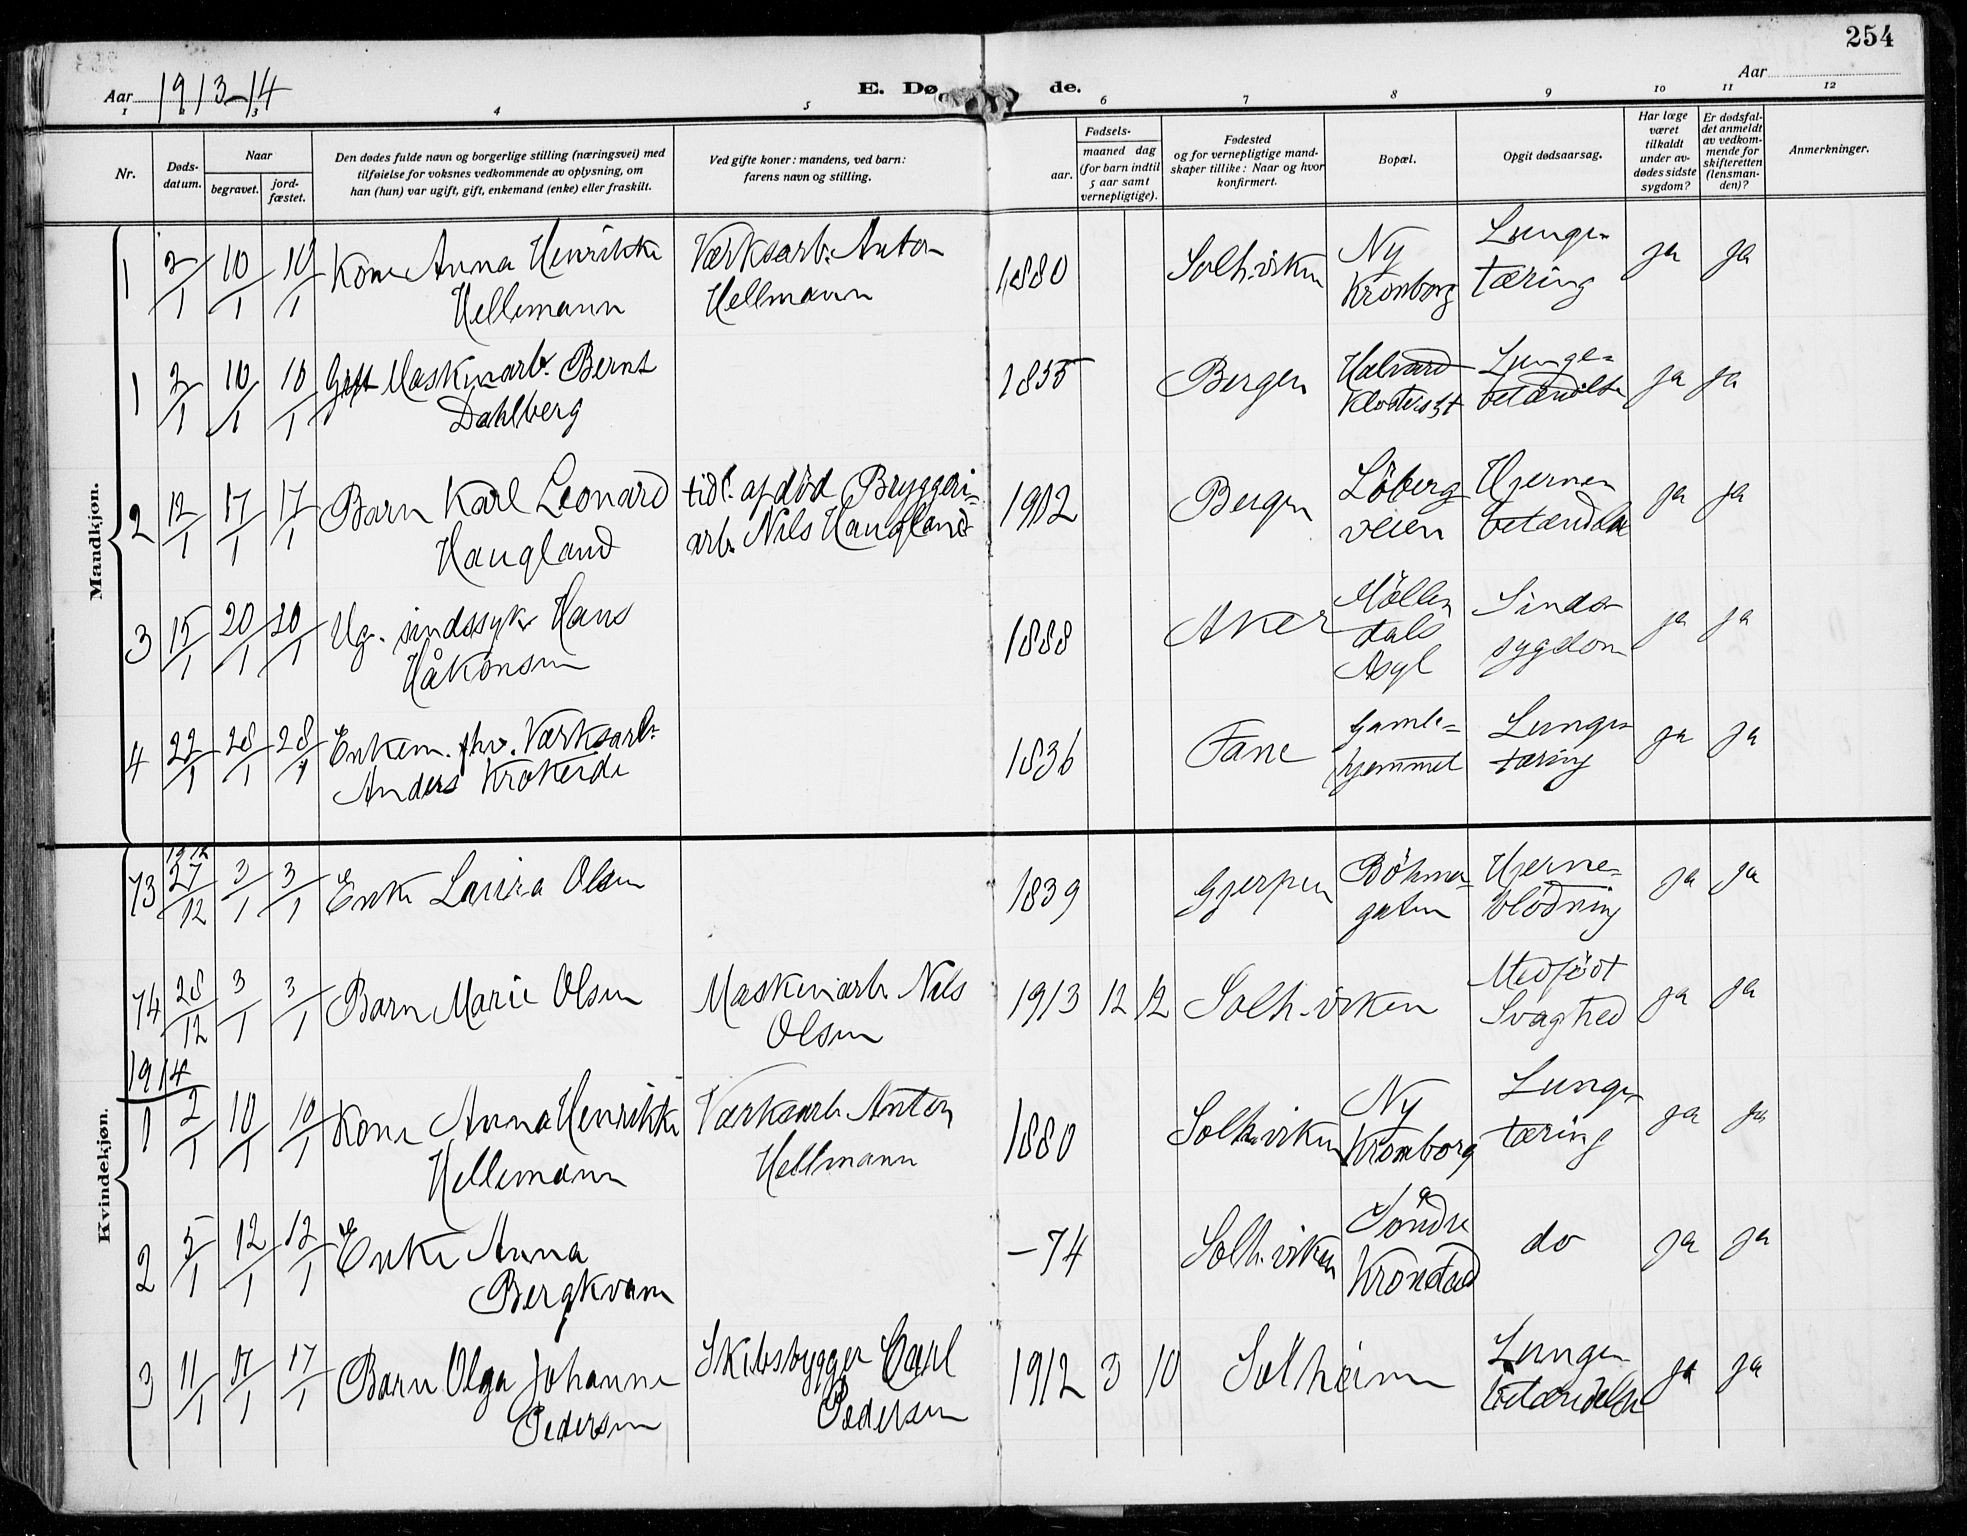 254
Aar 1913-14
E. Dø de.
Aar
1 2 3 4 5 6 7 8 9 10 11 12
Nr.
Døds-
datum.
Naar
begravet.
jord-
fæstet.
Den dødes fulde navn og borgerlige stilling (næringsvei) med
tilføielse for voksnes vedkommende av oplysning, om
han (hun) var ugift, gift, enkemand (enke) eller fraskilt.
Ved gifte koner: mandens, ved barn:
farens navn og stilling.
Fødsels-
aar.
maaned dag
(for barn indtil
5 aar samt
vernepligtige).
Fødested
og for vernepligtige mand-
skaper tillike: Naar og hvor
konfirmert.
Bopæl.
Opgit dødsaarsag.
Har læge
været
tilkaldt
under av-
dødes sidste
sygdom?
Er dødsfal-
det anmeldt
av vedkom-
mende for
skifteretten
(lensman-
den)?
Anmerkninger.
Mandkjøn.
1 2/1 10/1 10/1 Kone Anna Henrikke Værksarb. Anton 1880 Solh.viken Ny Lunge- ja ja
Hellemann Hellmann Kronborg tæring
1 2/1 10/1 10/1 Gift Maskinarb. Bernt 1835 Bergen Halvard Lunge- ja ja
Dahlberg Klosterst betændelse
2 12/1 17/1 17/1 Barn Karl Leonard tidl. afdød Bryggeri- 1912 Bergen Löberg Hjerne- ja ja
Haugland arb. Nils Haugland veien betændelse
3 15/1 20/1 20/1 Ug. sindssyk Hans 1888 Aker Möllen Sinds- ja ja
Håkonsen dals sygdom
Asyl
4 22/1 28/1 28/1 Enkem. fhv. Værksarb. 1836 Fane Gamle- Lunge- ja ja
Anders Krokeide hjemmet tæring
Kvindekjøn.
1912
73 27/12 3/1 3/1 Enke Laura Olsen 1839 Gjerpen Böhmer- Hjerne- ja ja
gaten blödning
74 28/12 3/1 3/1 Barn Marie Olsen Maskinarb. Nils 1913 12 12 Solh.viken Medfödt ja ja
Olsen Svaghed
1914
1 2/1 10/1 10/1 Kone Anna Henrikke Værksarb. Anton 1880 Solh.viken Ny Lunge- ja ja
Hellemann Hellmann Kronborg tæring
2 5/1 12/1 12/1 Enke Anna -74 Solh.viken Söndre do ja ja
Bergkvam Kronstad
3 11/1 17/1 17/1 Barn Olga Johanne Skibsbygger Carl 1912 3 10 Solheim Lunge- ja ja
Pedersen Pedersen betændelse